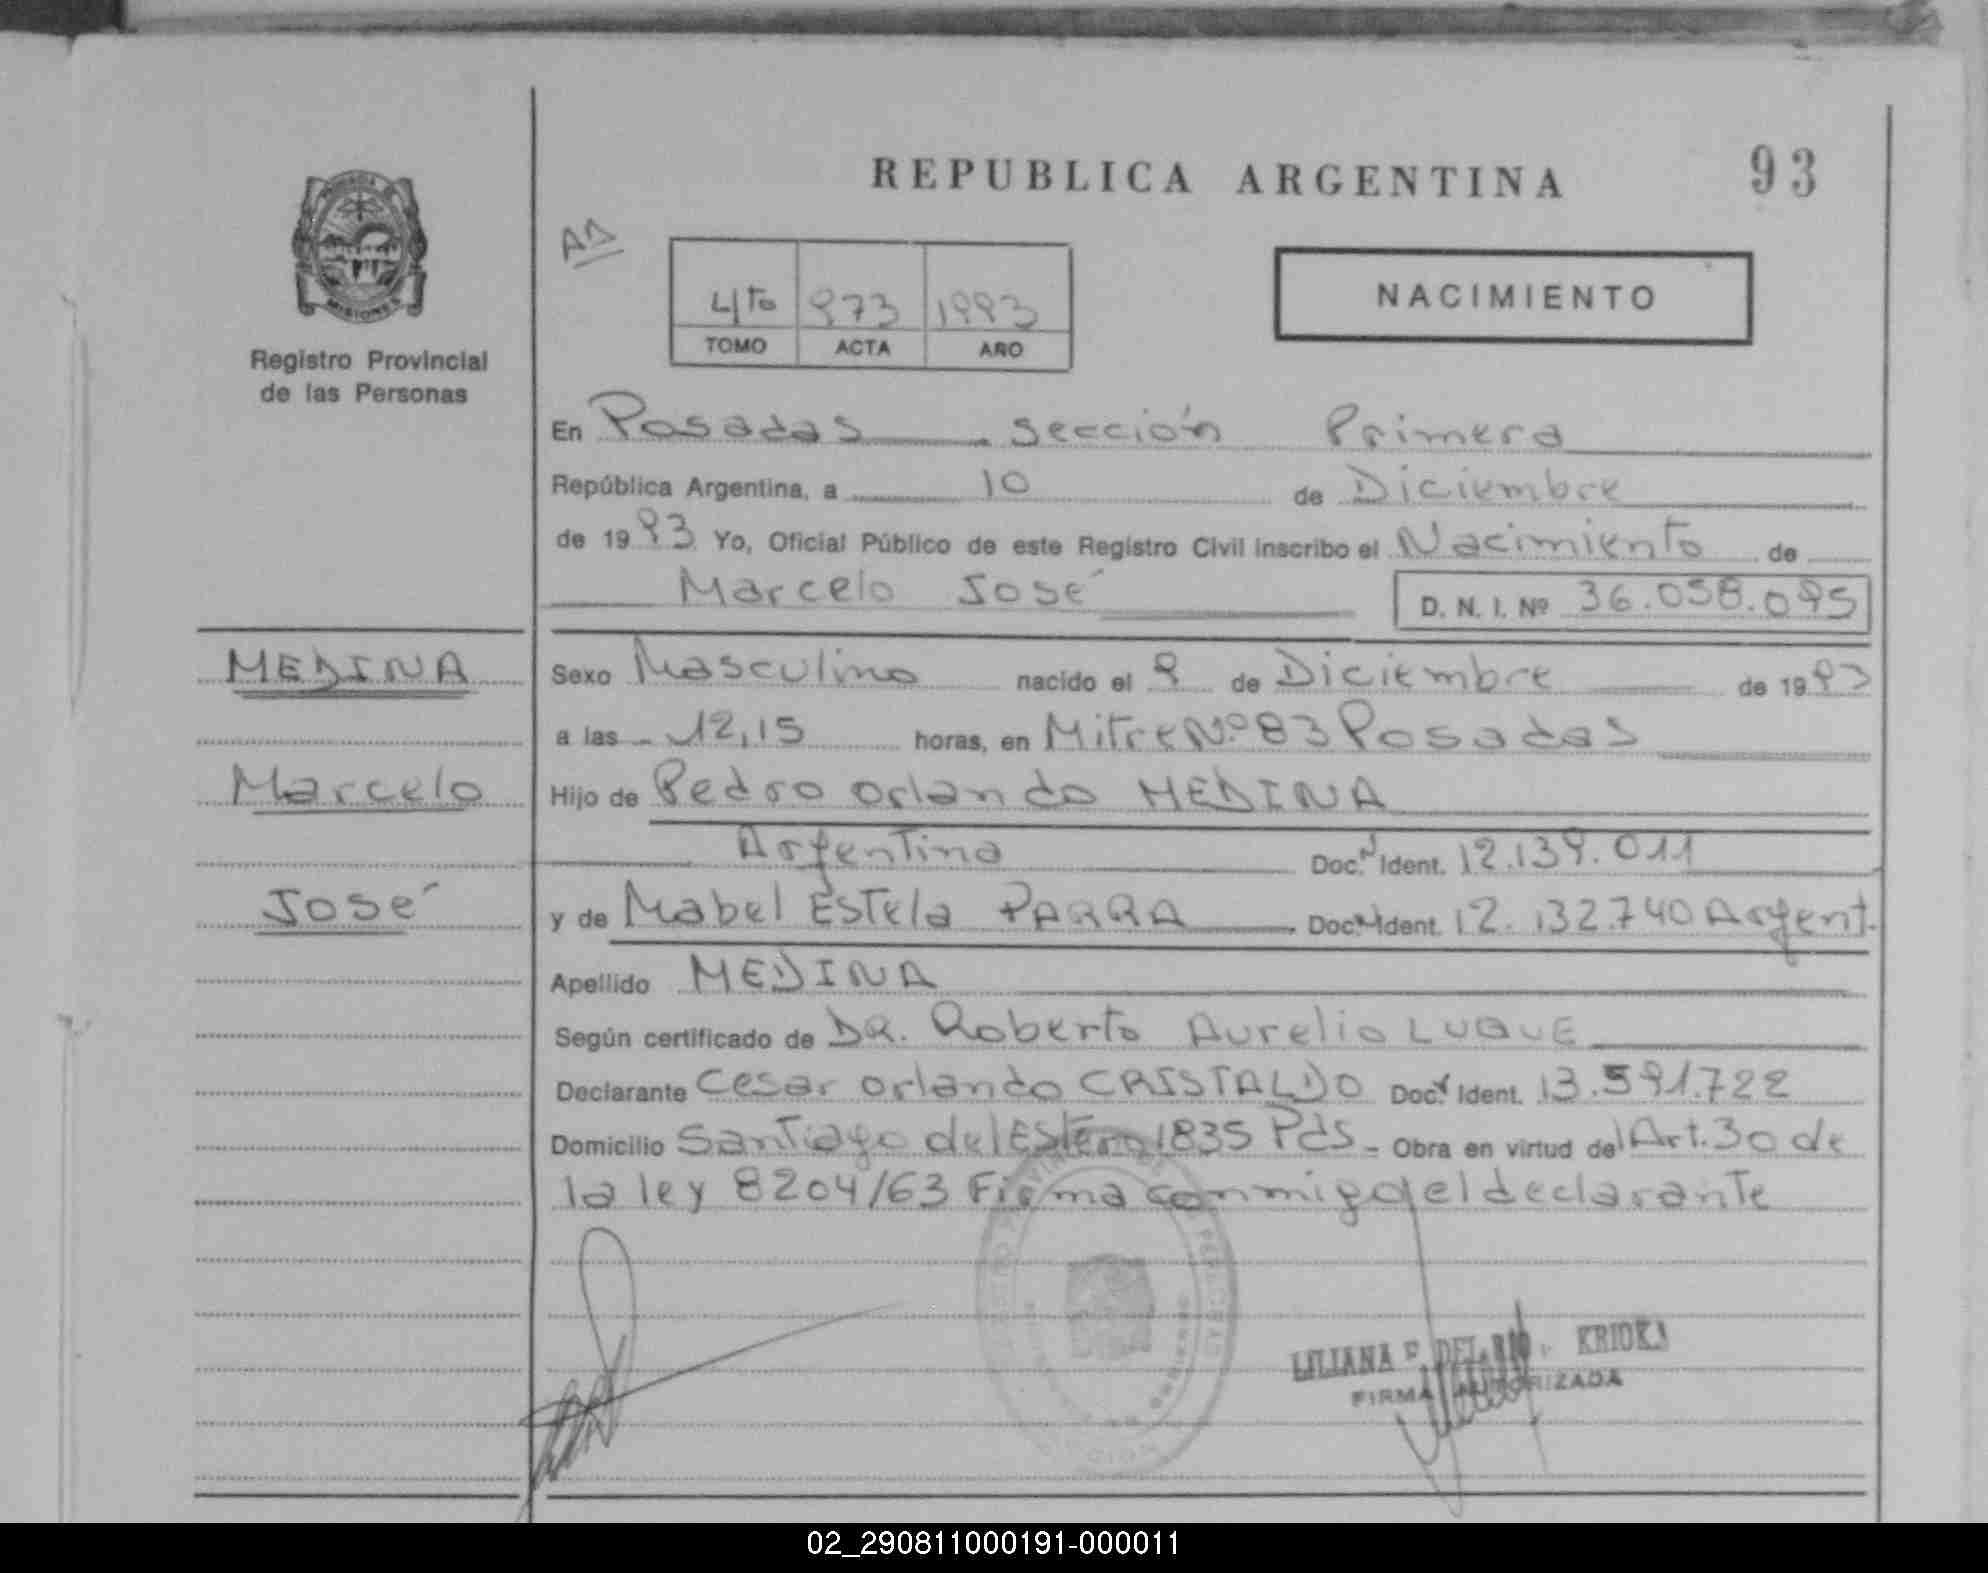 REPUBLICA ARGENTINA
93
MISIONES
Registro Provincial
de las Personas
AD
4to 973 1993
TOMO ACTA AÑO
NACIMIENTO
En Posadas sección Primera
República Argentina, a 10 de Diciembre
de 1993 Yo, Oficial Público de este Registro Civil inscribo el Nacimiento de
Marcelo José D. N. I. Nº 36.058.095
MEDINA
Sexo Masculino nacido el 9 de Diciembre de 1993
a las 12,15 horas, en Mitre Nº 83 Posadas
Marcelo
Hijo de Pedro Orlando MEDINA
Argentina Doc. Ident. 12.139.011
José
y de Mabel Estela PARRA Doc. Ident. 12.132.740 Argent.
Apellido MEDINA
Según certificado de DR. Roberto Aurelio LUQUE
Declarante Cesar Orlando CRISTALDO Doc. Ident. 13.591.722
Domicilio Santiago del Estero 1835 Pds - Obra en virtud del Art. 30 de
la ley 8204/63 Firma conmigo el declarante
LILIANA DEL KRIOKA
FIRMA AUTORIZADA
02_290811000191-000011